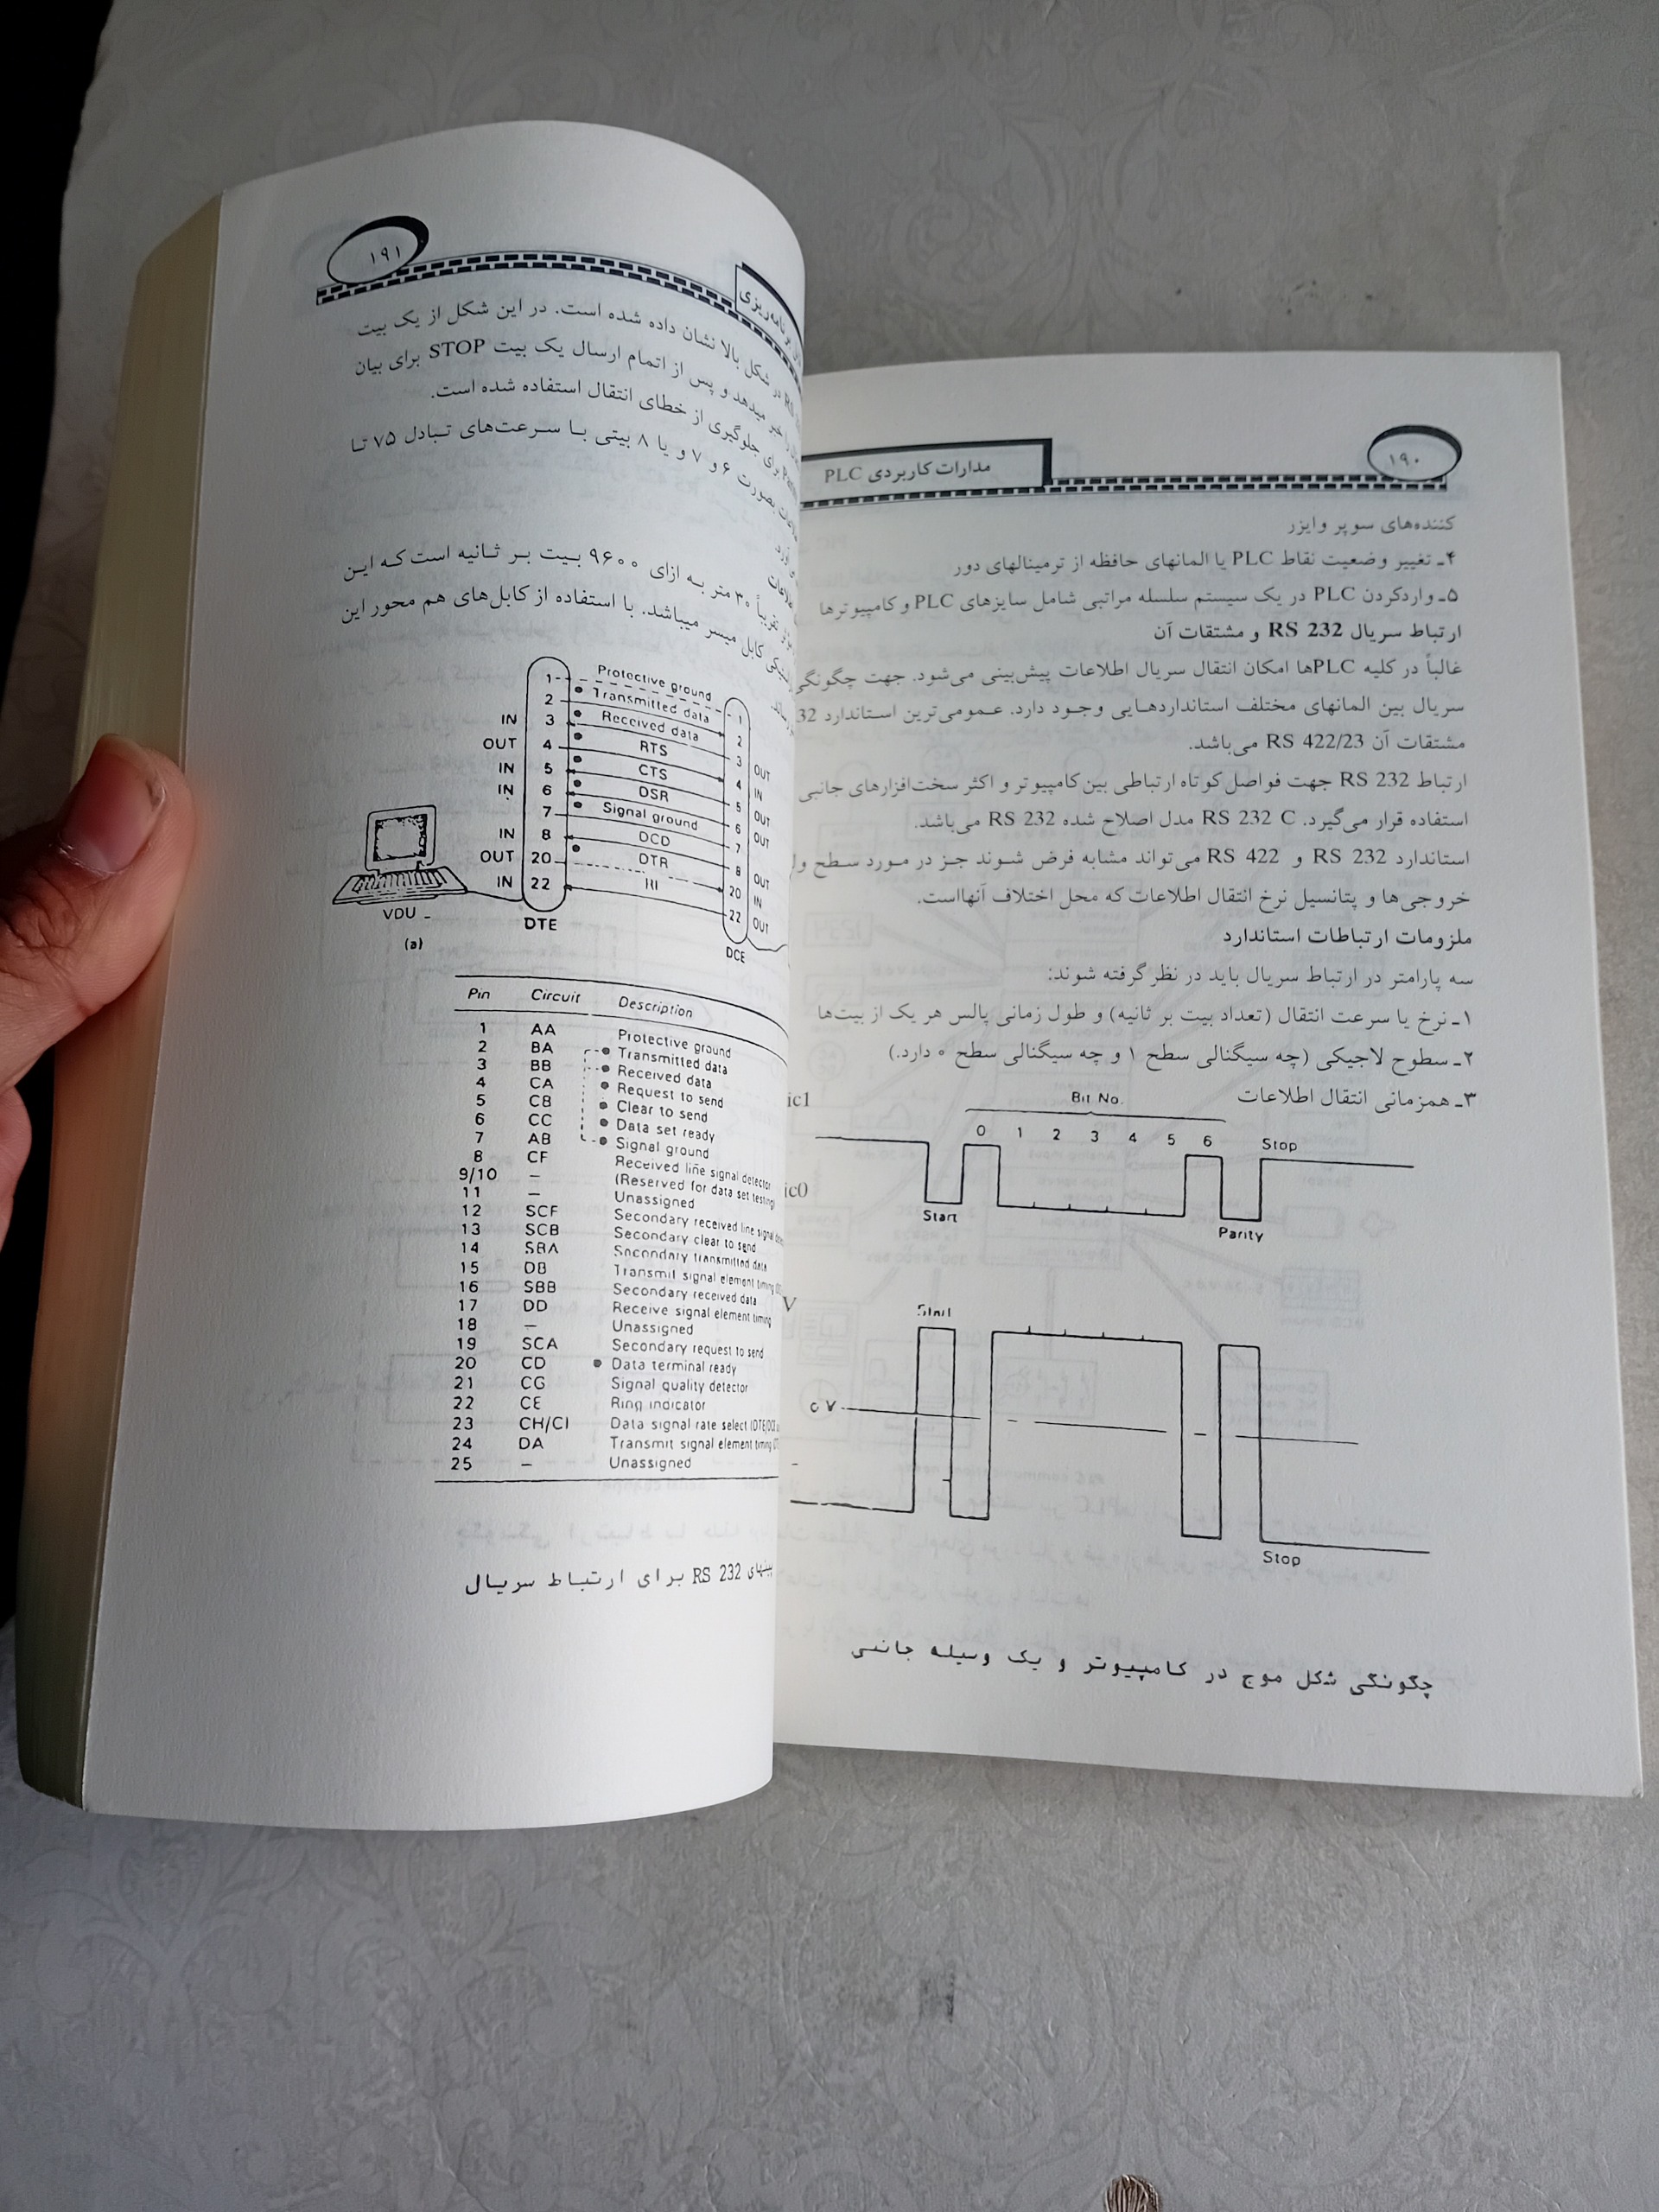 ۱۹۰
مدارات کاربردی PLC
کننده‌های سوپر وایزر
۴ـ تغییر وضعیت نقاط PLC یا المانهای حافظه از ترمینالهای دور
۵ـ واردکردن PLC در یک سیستم سلسله مراتبی شامل سایزهای PLC و کامپیوترها
ارتباط سریال RS 232 و مشتقات آن
غالباً در کلیه PLCها امکان انتقال سریال اطلاعات پیش‌بینی می‌شود. جهت چگونگی
سریال بین المانهای مختلف استانداردهـایی وجـود دارد. عـمومی‌ترین اسـتاندارد 32
مشتقات آن RS 422/23 می‌باشد.
ارتباط RS 232 جهت فواصل کوتاه ارتباطی بین کامپیوتر و اکثر سخت‌افزارهای جانبی
استفاده قرار می‌گیرد. RS 232 C مدل اصلاح شده RS 232 می‌باشد.
استاندارد RS 232 و RS 422 می‌تواند مشابه فرض شـوند جـز در مـورد سـطح
خروجی‌ها و پتانسیل نرخ انتقال اطلاعات که محل اختلاف آنهااست.
ملزومات ارتباطات استاندارد
سه پارامتر در ارتباط سریال باید در نظر گرفته شوند:
۱ـ نرخ یا سرعت انتقال (تعداد بیت بر ثانیه) و طول زمانی پالس هر یک از بیت‌ها
۲ـ سطوح لاجیکی (چه سیگنالی سطح ۱ و چه سیگنالی سطح ۰ دارد.)
۳ـ همزمانی انتقال اطلاعات
Bit No.
ic1
0 1 2 3 4 5 6 Stop
ic0
Start
Parity
V
Start
0 V
Stop
چگونگی شکل موج در کامپیوتر و یک وسیله جانبی
۱۹۱
برنامه‌ریزی
در شکل بالا نشان داده شده است. در این شکل از یک بیت
خبر میدهد و پس از اتمام ارسال یک بیت STOP برای بیان
برای جلوگیری از خطای انتقال استفاده شده است.
بصورت ۶ و ۷ و یا ۸ بیتی بـا سـرعت‌های تـبادل ۷۵ تـا
تقریباً ۳۰ متر بـه ازای ۹۶۰۰ بـیت بـر ثـانیه است کـه ایـن
کابل میسر میباشد. با استفاده از کابل‌های هم محور این
1 Protective ground 1
2 Transmitted data 2
IN 3 Received data 3 OUT
OUT 4 RTS 4 IN
IN 5 CTS 5 OUT
IN 6 DSR 6 OUT
7 Signal ground 7
IN 8 DCD 8 OUT
OUT 20 DTR 20 IN
IN 22 RI 22 OUT
VDU
DTE
DCE
(a)
Pin Circuit Description
1 AA Protective ground
2 BA Transmitted data
3 BB Received data
4 CA Request to send
5 CB Clear to send
6 CC Data set ready
7 AB Signal ground
8 CF Received line signal detector
9/10 – (Reserved for data set testing)
11 – Unassigned
12 SCF Secondary received line signal
13 SCB Secondary clear to send
14 SBA Secondary transmitted data
15 DB Transmit signal element timing
16 SBB Secondary received data
17 DD Receive signal element timing
18 – Unassigned
19 SCA Secondary request to send
20 CD Data terminal ready
21 CG Signal quality detector
22 CE Ring indicator
23 CH/CI Data signal rate select (DTE/DCE
24 DA Transmit signal element timing
25 – Unassigned
پینهای RS 232 برای ارتباط سریال